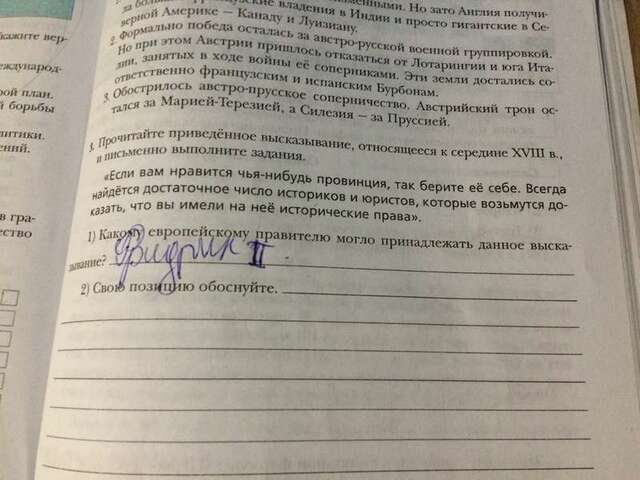 кажите вер-
еждународ-
рой план.
й борьбы
литики.
ений.
в гра-
ество
менными. Но зато Англия получи-
ла больш цузские владения в Индии и просто гигантские в Се-
верной Америке — Канаду и Луизиану.
2. Формально победа осталась за австро-русской военной группировкой.
Но при этом Австрии пришлось отказаться от Лотарингии и юга Ита-
лии, занятых в ходе войны её соперниками. Эти земли достались со-
ответственно французским и испанским Бурбонам.
3. Обострилось австро-прусское соперничество. Австрийский трон ос-
тался за Марией-Терезией, а Силезия — за Пруссией.
3. Прочитайте приведённое высказывание, относящееся к середине XVIII в.,
и письменно выполните задания.
«Если вам нравится чья-нибудь провинция, так берите её себе. Всегда
найдётся достаточное число историков и юристов, которые возьмутся до-
казать, что вы имели на неё исторические права».
1) Какому европейскому правителю могло принадлежать данное выска-
зывание? Фидрик II
2) Свою позицию обоснуйте.